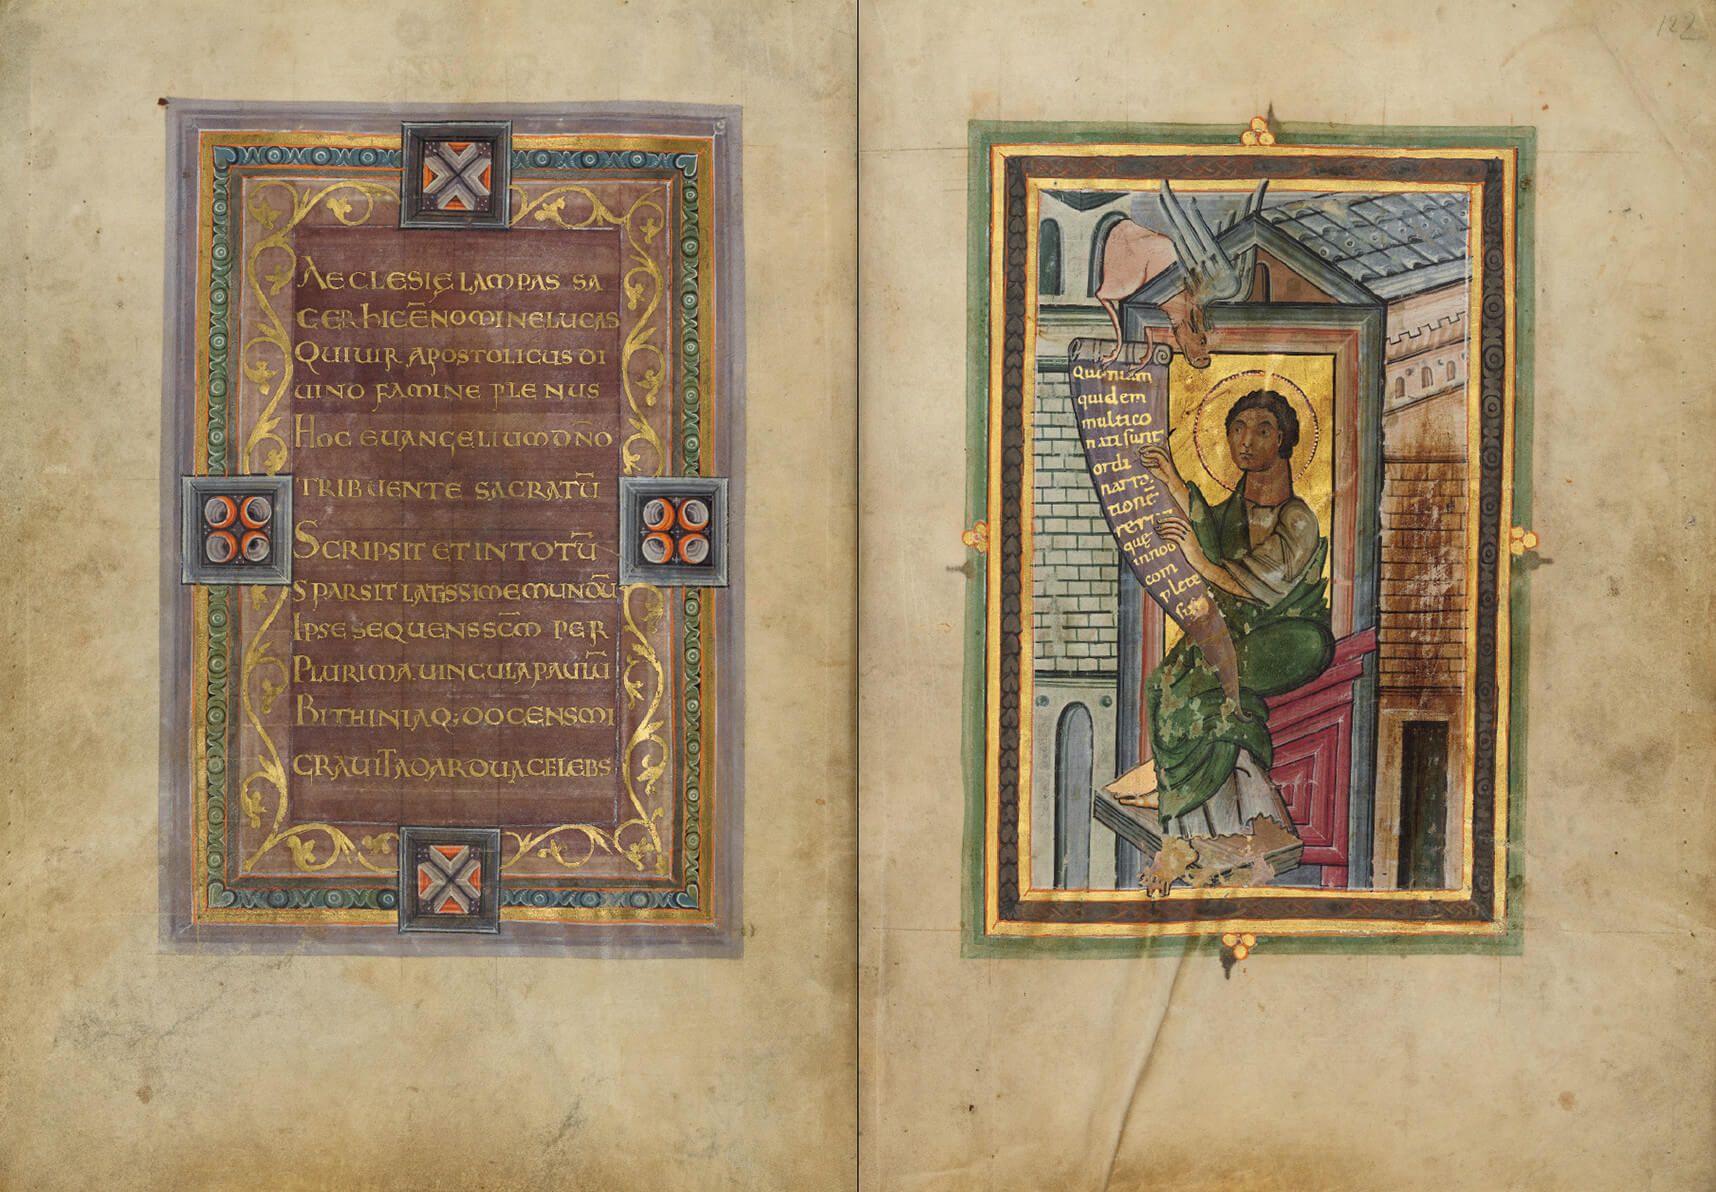 AECLESIĘ LAMPAS SA
CER HIC ĒNOMINE LUCAS
QUI UIR APOSTOLICUS DI
UINO FAMINE PLENUS
HOC EUANGELIUM DÑO
TRIBUENTE SACRATŪ
SCRIPSIT ET IN TOTŪ
SPARSIT LATISSIME MUNDŪ
IPSE SEQUENS SC̄M PER
PLURIMA UINCULA PAULŪ
BITHINIAQ; DOCENS MI
GRAUIT AD ARDUA CELEBS
122
Quoniam
quidem
multi co
nati sunt
ordi
narra
tionē
rerum
quę
in nob
com
plete
sunt